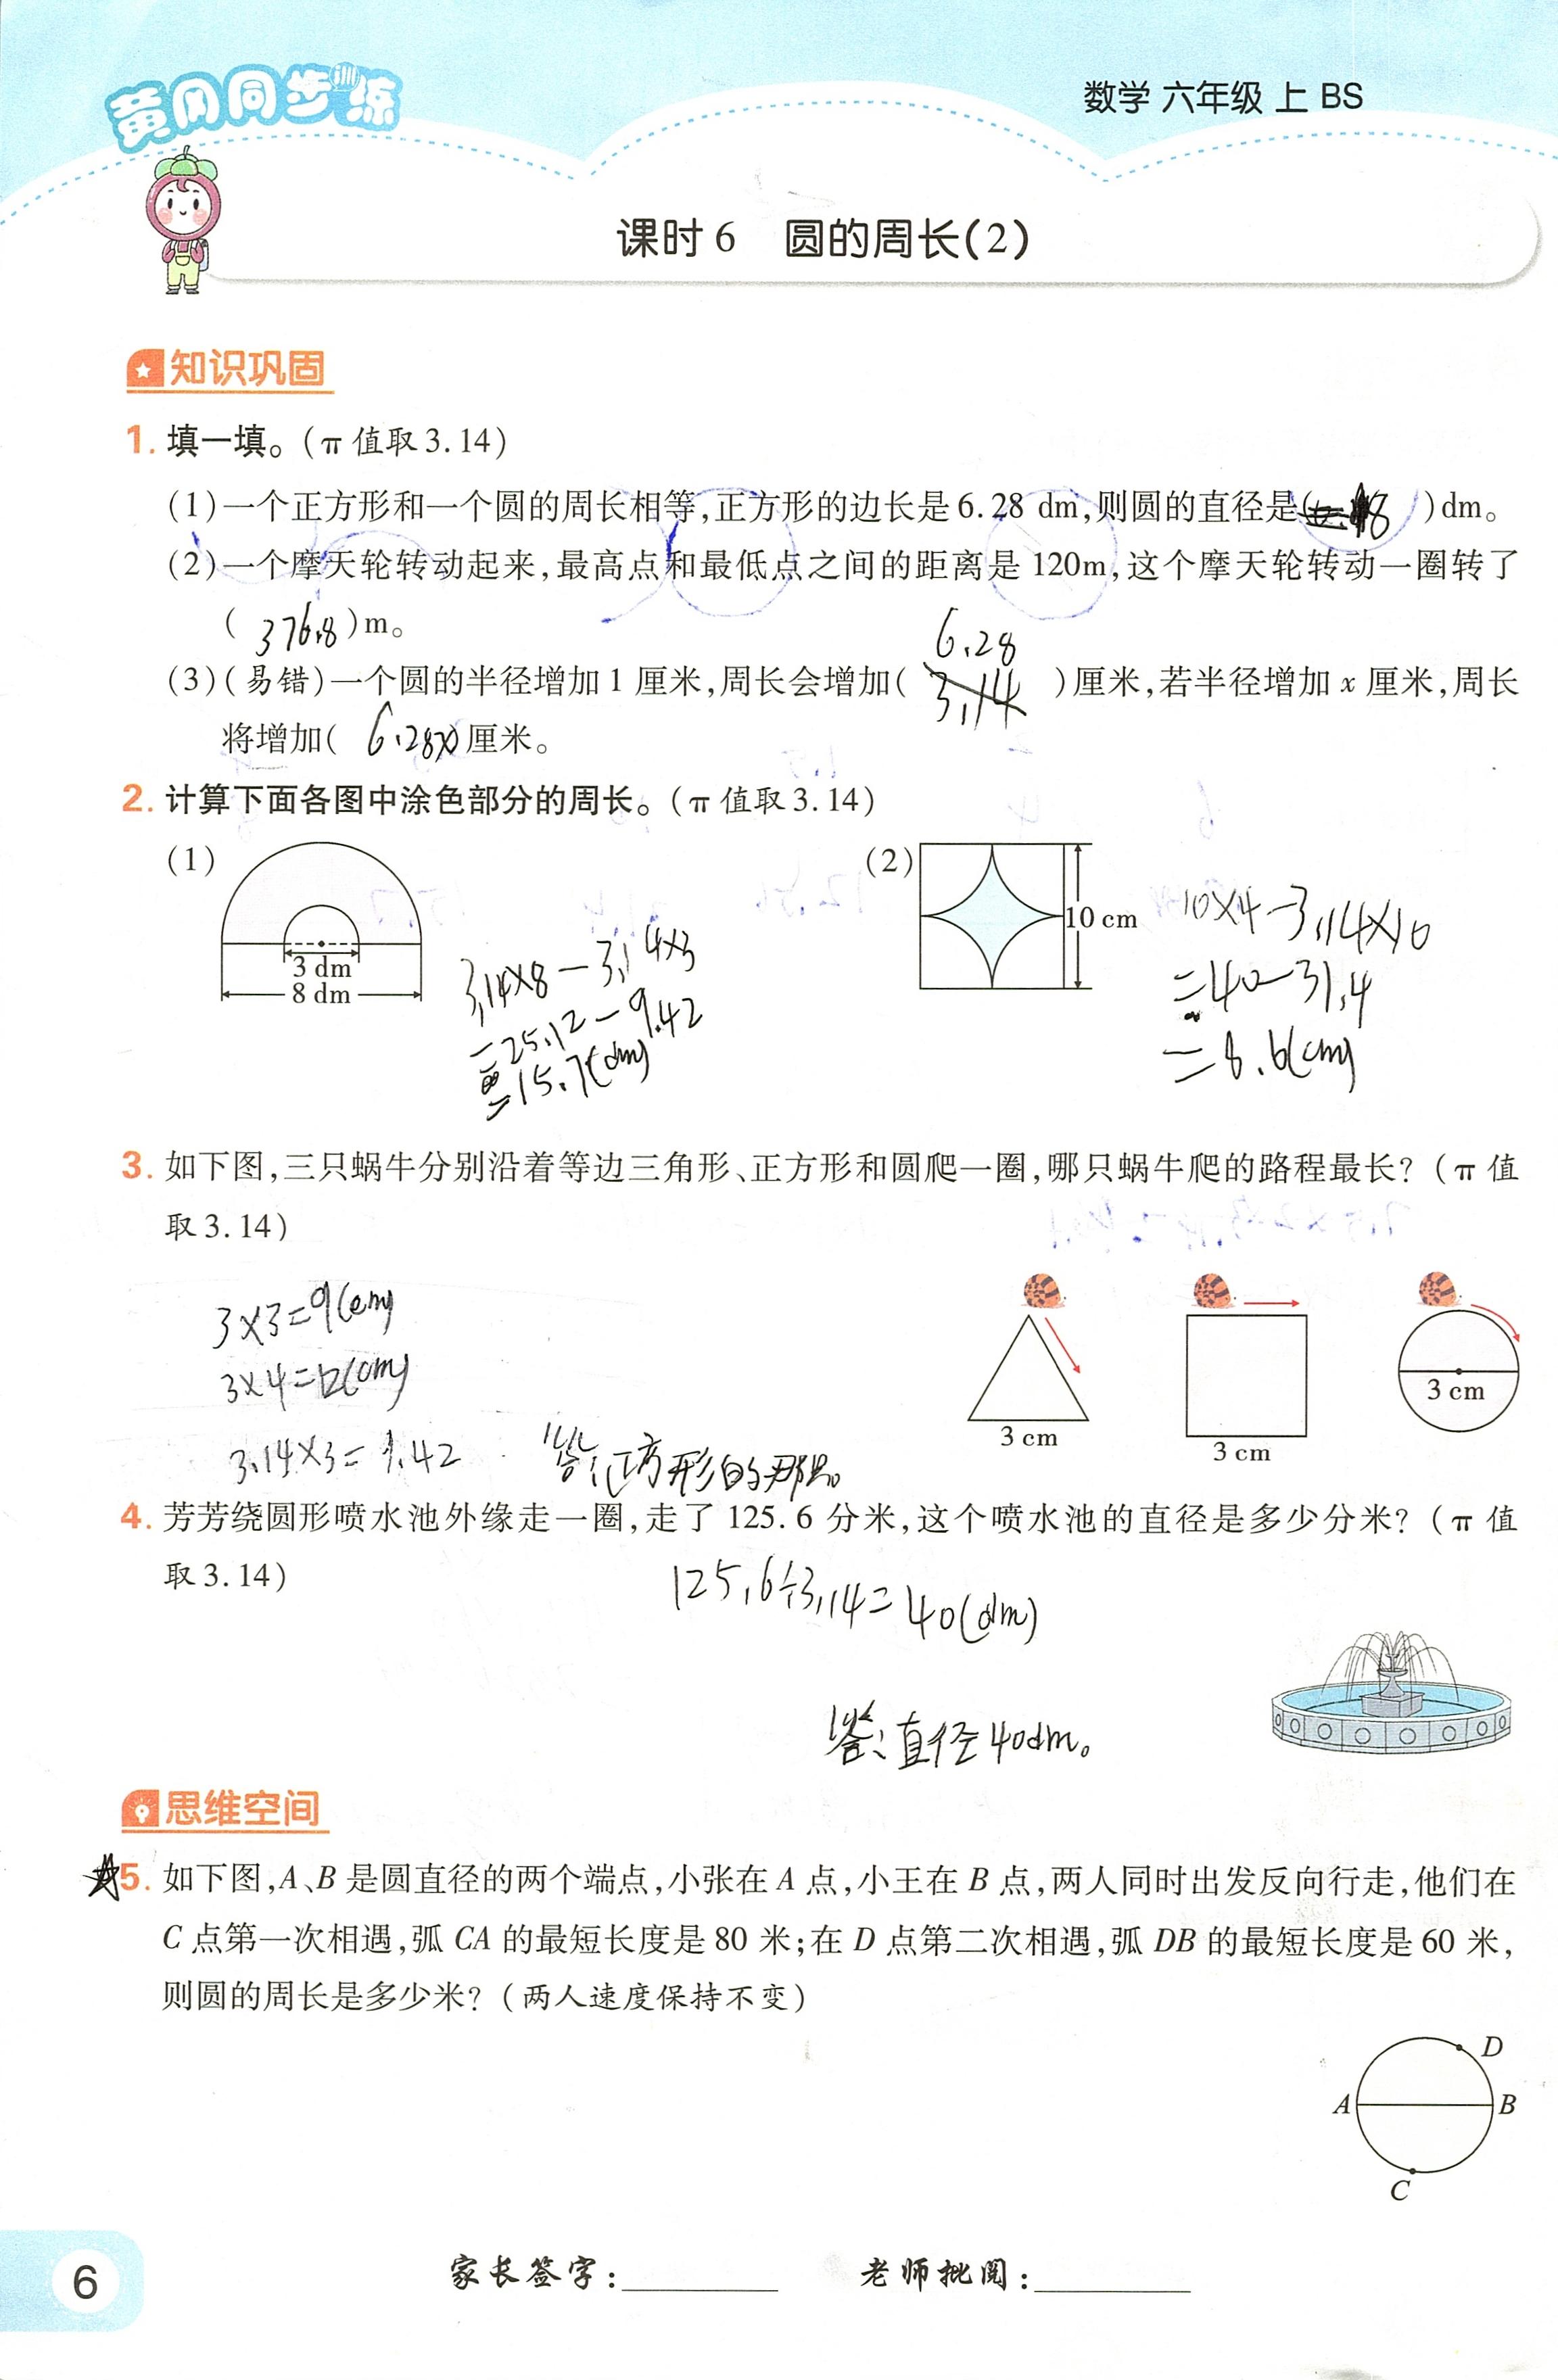 黄冈同步训练
数学 六年级 上 BS
课时6 圆的周长(2)
知识巩固
1. 填一填。(π值取3.14)
(1)一个正方形和一个圆的周长相等,正方形的边长是6.28 dm,则圆的直径是( 8 )dm。
(2)一个摩天轮转动起来,最高点和最低点之间的距离是120m,这个摩天轮转动一圈转了
( 376.8 )m。
6.28
(3)(易错)一个圆的半径增加1厘米,周长会增加( 3.14 )厘米,若半径增加x厘米,周长
将增加( 6.28x )厘米。
2. 计算下面各图中涂色部分的周长。(π值取3.14)
(1)
3 dm
8 dm
3.14×8-3.14×3
=25.12-9.42
=15.7(dm)
(2)
10 cm
10×4-3.14×10
=40-31.4
=8.6(cm)
3. 如下图,三只蜗牛分别沿着等边三角形、正方形和圆爬一圈,哪只蜗牛爬的路程最长?(π值
取3.14)
3×3=9(cm)
3×4=12(cm)
3.14×3=9.42
答:正方形的那只。
3 cm
3 cm
3 cm
4. 芳芳绕圆形喷水池外缘走一圈,走了125.6分米,这个喷水池的直径是多少分米?(π值
取3.14)
125.6÷3.14=40(dm)
答:直径40dm。
思维空间
5. 如下图,A、B是圆直径的两个端点,小张在A点,小王在B点,两人同时出发反向行走,他们在
C点第一次相遇,弧CA的最短长度是80米;在D点第二次相遇,弧DB的最短长度是60米,
则圆的周长是多少米?(两人速度保持不变)
D
A
B
C
家长签字:
老师批阅:
6